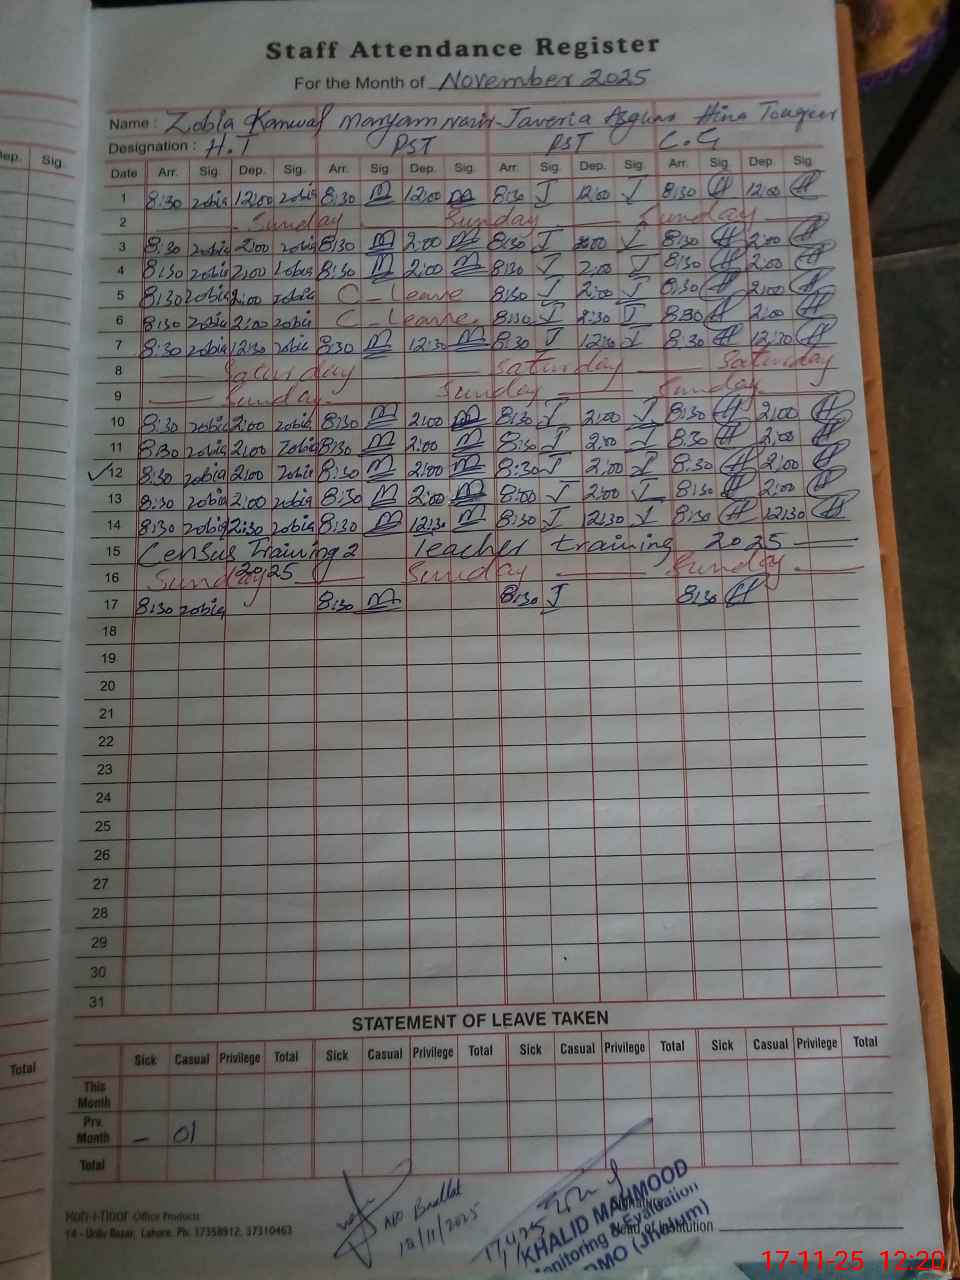 Staff Attendance Register
For the Month of November 2025
Name : Zobia Kanwal Maryam Javeria Asghar Hina
Designation : H.T PST PST C.G
ep. Sig.
Date Arr. Sig. Dep. Sig. Arr. Sig. Dep. Sig. Arr. Sig. Dep. Sig. Arr. Sig. Dep. Sig.
1 8:30 zobia 12:00 zobia 8:30 m 12:00 m 8:30 J 12:00 J 8:30 H 12:00 H
2 Sunday Sunday Sunday
3 8:30 zobia 2:00 zobia 8:30 m 2:00 m 8:30 J 2:00 J 8:30 H 2:00 H
4 8:30 zobia 2:00 zobia 8:30 m 2:00 m 8:30 J 2:00 J 8:30 H 2:00 H
5 8:30 zobia 2:00 zobia C - Leave 8:30 J 2:00 J 8:30 H 2:00 H
6 8:30 zobia 2:00 zobia C - Leave 8:30 J 2:30 J 8:30 H 2:00 H
7 8:30 zobia 12:30 zobia 8:30 m 12:30 m 8:30 J 12:30 J 8:30 H H
8 Saturday Saturday Saturday
9 Sunday Sunday Sunday
10 8:30 zobia 2:00 zobia 8:30 m 2:00 m 8:30 J 2:00 J 8:30 H 2:00 H
11 8:30 zobia 2:00 zobia 8:30 m 2:00 m 8:30 J 2:00 J 8:30 H 2:00 H
✓12 8:30 zobia 2:00 zobia 8:30 m 2:00 m 8:30 J 2:00 J 8:30 H 2:00 H
13 8:30 zobia 2:00 zobia 8:30 m 2:00 m 8:00 J 2:00 J 8:30 H 2:00 H
14 8:30 zobia 12:30 zobia 8:30 m 12:30 m 8:30 J 12:30 J 8:30 H 12:30 H
15 Census Training 2025 Teacher training 2025
16 Sunday Sunday Sunday
17 8:30 zobia 8:30 m 8:30 J 8:30 H
18
19
20
21
22
23
24
25
26
27
28
29
30
31
STATEMENT OF LEAVE TAKEN
Total
Sick Casual Privilege Total Sick Casual Privilege Total Sick Casual Privilege Total Sick Casual Privilege Total
This Month
Prv. Month - 01
Total
12/11/2025
KHALID MAHMOOD
Monitoring & Evaluation
DMO (Jhelum)
Signature
Head of Institution
Office Products
14 - Urdu Bazar, Lahore. Ph: 37358912, 37310463
17-11-25 12:20